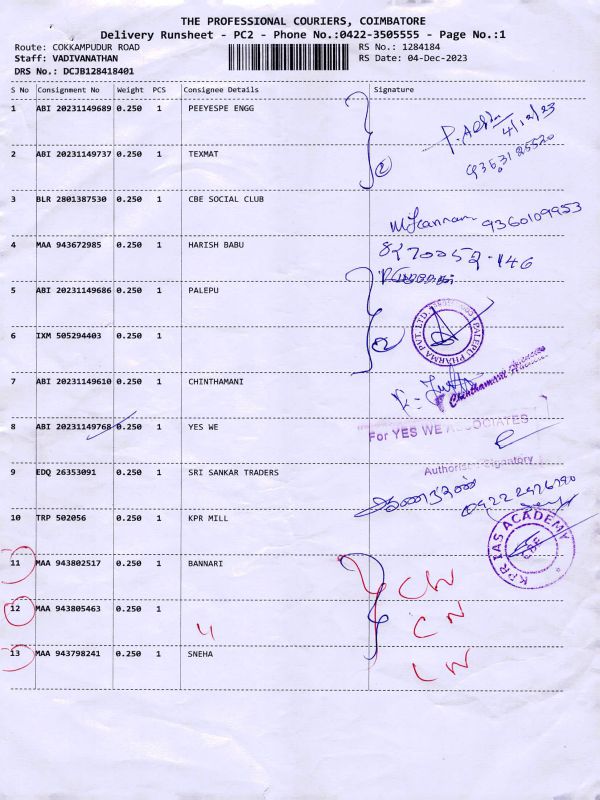 THE PROFESSIONAL COURIERS, COIMBATORE
Delivery Runsheet - PC2 - Phone No.:0422-3505555 - Page No.:1
Route: COKKAMPUDUR ROAD
RS No.: 1284184
Staff: VADIVANATHAN
RS Date: 04-Dec-2023
DRS No.: DCJB128418401
S No Consignment No Weight PCS Consignee Details Signature
1 ABI 20231149689 0.250 1 PEEYESPE ENGG
4/12/23
2 ABI 20231149737 0.250 1 TEXMAT
2
3 BLR 2801387530 0.250 1 CBE SOCIAL CLUB
9360109953
4 MAA 943672985 0.250 1 HARISH BABU
8270052146
5 ABI 20231149686 0.250 1 PALEPU
PALEPU PHARMA PVT. LTD.
6 IXM 505294403 0.250 1
2
7 ABI 20231149610 0.250 1 CHINTHAMANI
Chinthamani
8 ABI 20231149768 0.250 1 YES WE
For YES WE ASSOCIATES
Authorised Signatory
9 EDQ 26353091 0.250 1 SRI SANKAR TRADERS
10 TRP 502056 0.250 1 KPR MILL
KPR IAS ACADEMY
CBE
11 MAA 943802517 0.250 1 BANNARI
CN
12 MAA 943805463 0.250 1
4
CN
13 MAA 943798241 0.250 1 SNEHA